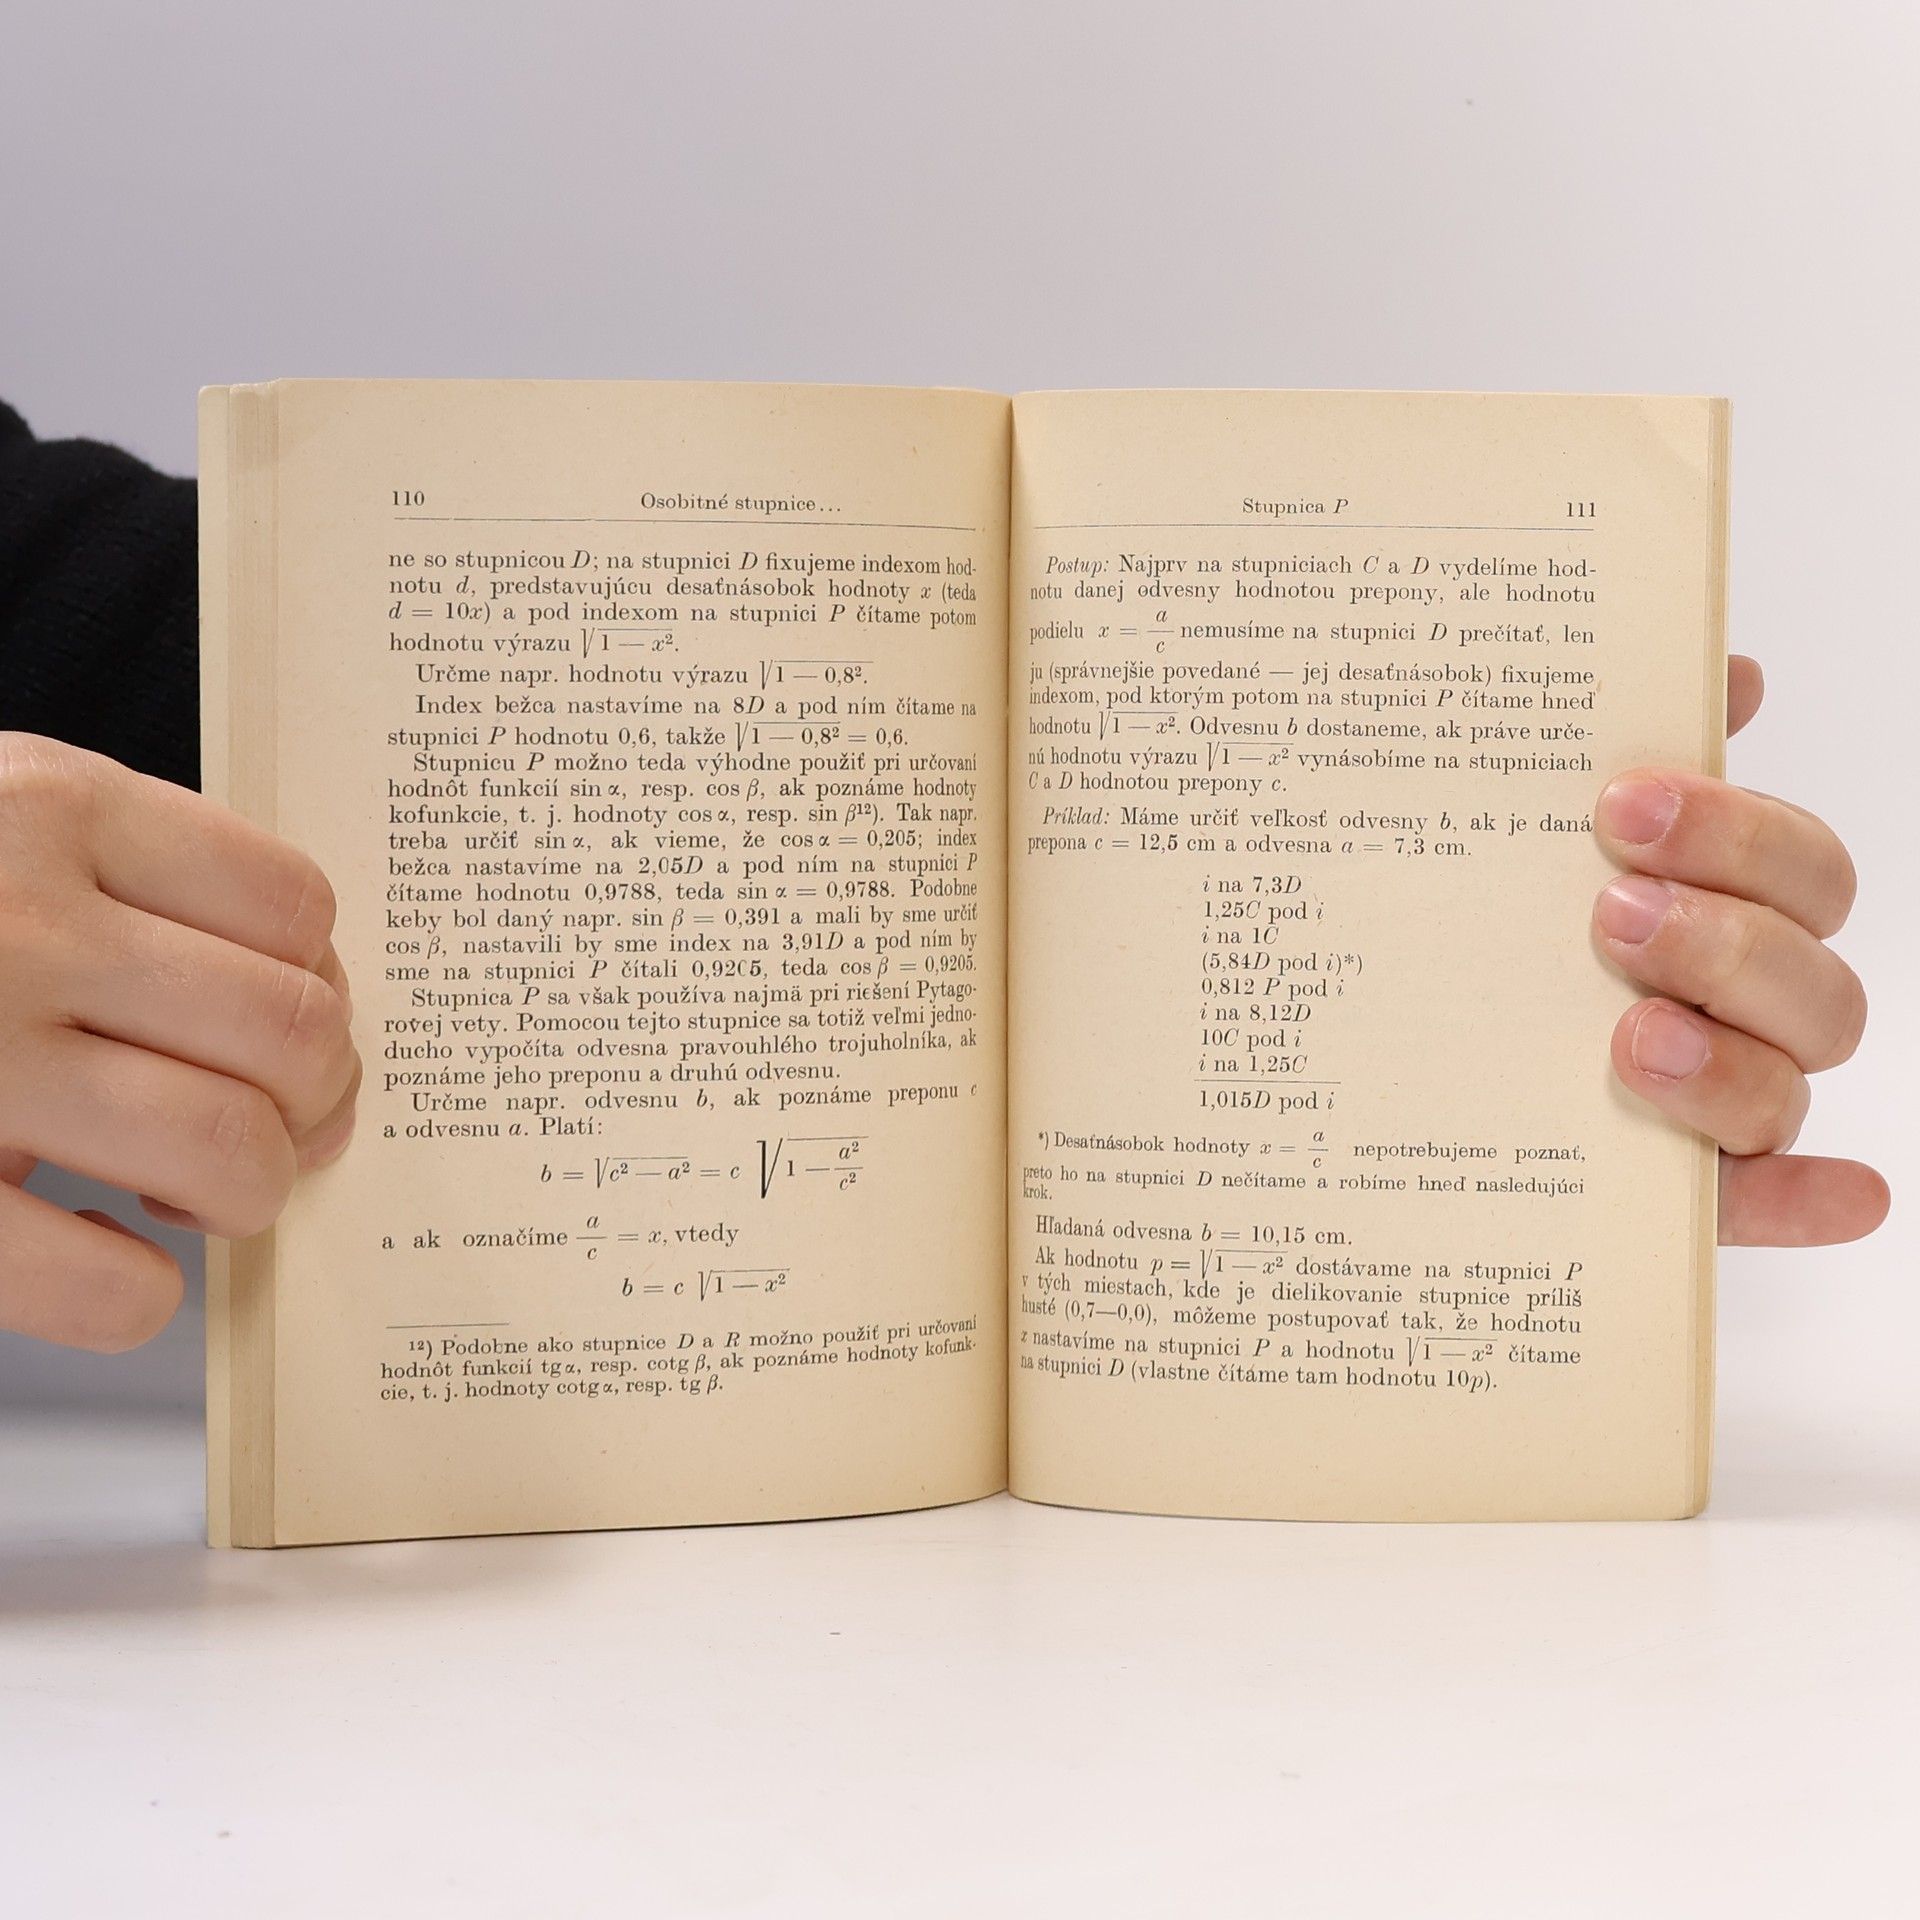 110 Osobitné stupnice...
ne so stupnicou D; na stupnici D fixujeme indexom hod-
notu d, predstavujúcu desaťnásobok hodnoty x (teda
d = 10x) a pod indexom na stupnici P čítame potom
hodnotu výrazu √1 — x².
Určme napr. hodnotu výrazu √1 — 0,8².
Index bežca nastavíme na 8D a pod ním čítame na
stupnici P hodnotu 0,6, takže √1 — 0,8² = 0,6.
Stupnicu P možno teda výhodne použiť pri určovaní
hodnôt funkcií sin α, resp. cos β, ak poznáme hodnoty
kofunkcie, t. j. hodnoty cos α, resp. sin β¹²). Tak napr.
treba určiť sin α, ak vieme, že cos α = 0,205; index
bežca nastavíme na 2,05D a pod ním na stupnici P
čítame hodnotu 0,9788, teda sin α = 0,9788. Podobne
keby bol daný napr. sin β = 0,391 a mali by sme určiť
cos β, nastavili by sme index na 3,91D a pod ním by
sme na stupnici P čítali 0,9205, teda cos β = 0,9205.
Stupnica P sa však používa najmä pri riešení Pytago-
rovej vety. Pomocou tejto stupnice sa totiž veľmi jedno-
ducho vypočíta odvesna pravouhlého trojuholníka, ak
poznáme jeho preponu a druhú odvesnu.
Určme napr. odvesnu b, ak poznáme preponu c
a odvesnu a. Platí:
b = √c² — a² = c √1 — a²/c²
a ak označíme a/c = x, vtedy
b = c √1 — x²
¹²) Podobne ako stupnice D a R možno použiť pri určovaní
hodnôt funkcií tg α, resp. cotg β, ak poznáme hodnoty kofunk-
cie, t. j. hodnoty cotg α, resp. tg β.
Stupnica P 111
Postup: Najprv na stupniciach C a D vydelíme hod-
notu danej odvesny hodnotou prepony, ale hodnotu
podielu x = a/c nemusíme na stupnici D prečítať, len
ju (správnejšie povedané — jej desaťnásobok) fixujeme
indexom, pod ktorým potom na stupnici P čítame hneď
hodnotu √1 — x². Odvesnu b dostaneme, ak práve urče-
nú hodnotu výrazu √1 — x² vynásobíme na stupniciach
C a D hodnotou prepony c.
Príklad: Máme určiť veľkosť odvesny b, ak je daná
prepona c = 12,5 cm a odvesna a = 7,3 cm.
i na 7,3D
1,25C pod i
i na 1C
(5,84D pod i)*)
0,812 P pod i
i na 8,12D
10C pod i
i na 1,25C
1,015D pod i
*) Desaťnásobok hodnoty x = a/c nepotrebujeme poznať,
preto ho na stupnici D nečítame a robíme hneď nasledujúci
krok.
Hľadaná odvesna b = 10,15 cm.
Ak hodnotu p = √1 — x² dostávame na stupnici P
v tých miestach, kde je dielikovanie stupnice príliš
husté (0,7—0,0), môžeme postupovať tak, že hodnotu
x nastavíme na stupnici P a hodnotu √1 — x² čítame
na stupnici D (vlastne čítáme tam hodnotu 10p).